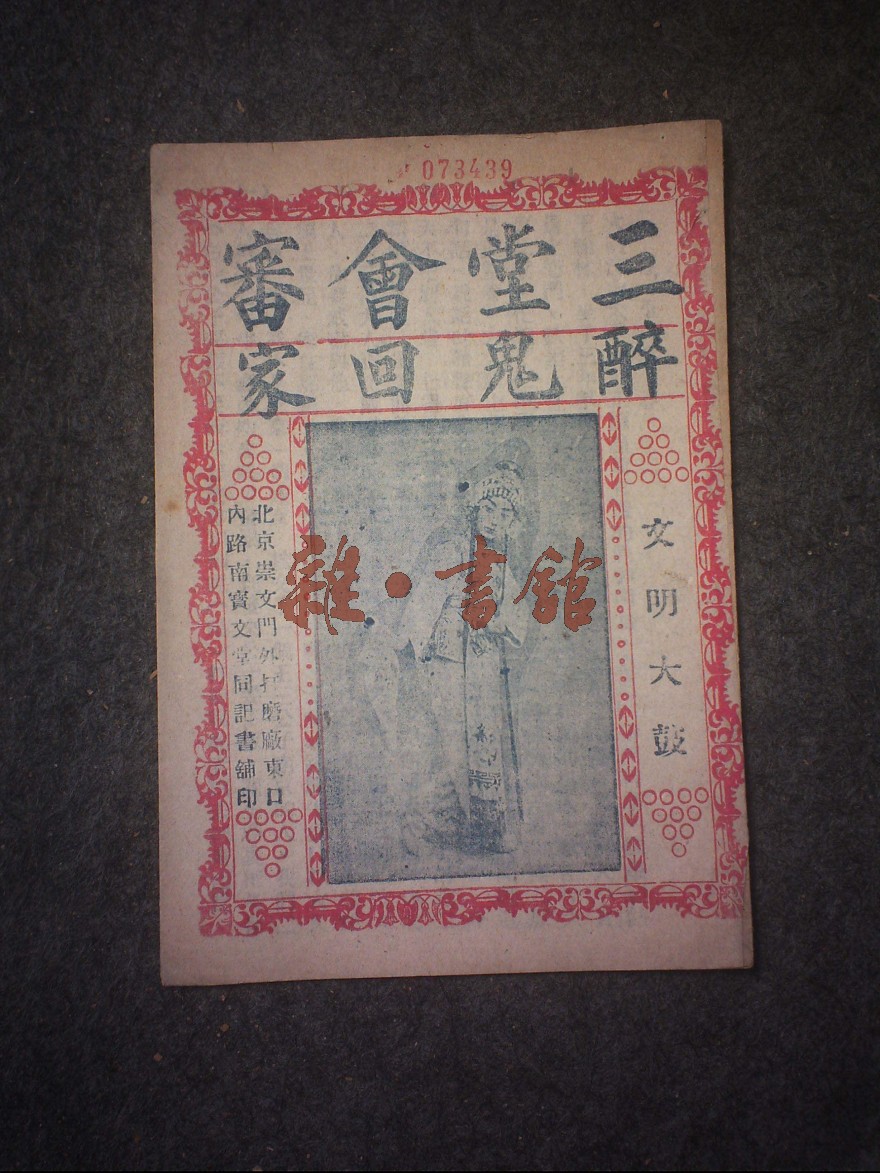 073439
三堂會審
醉鬼回家
文明大鼓
北京崇文門外打磨廠東口
內路南寳文堂同記書舖印
雜·書館